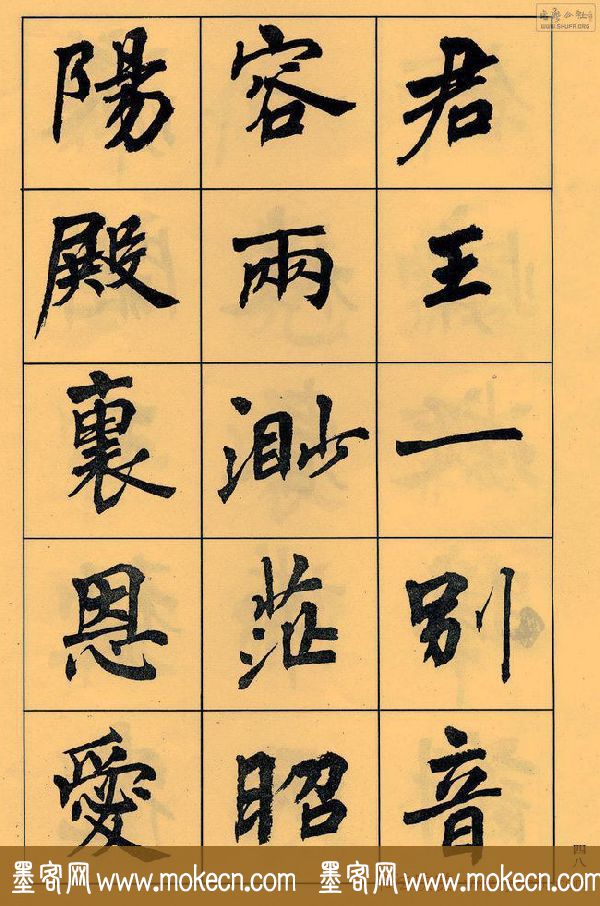 君王一别音
容兩渺茫昭
陽殿裏恩愛
四八
WWW.SHUFR.ORG
墨客网 www.mokecn.com 墨客网 www.mokecn.com